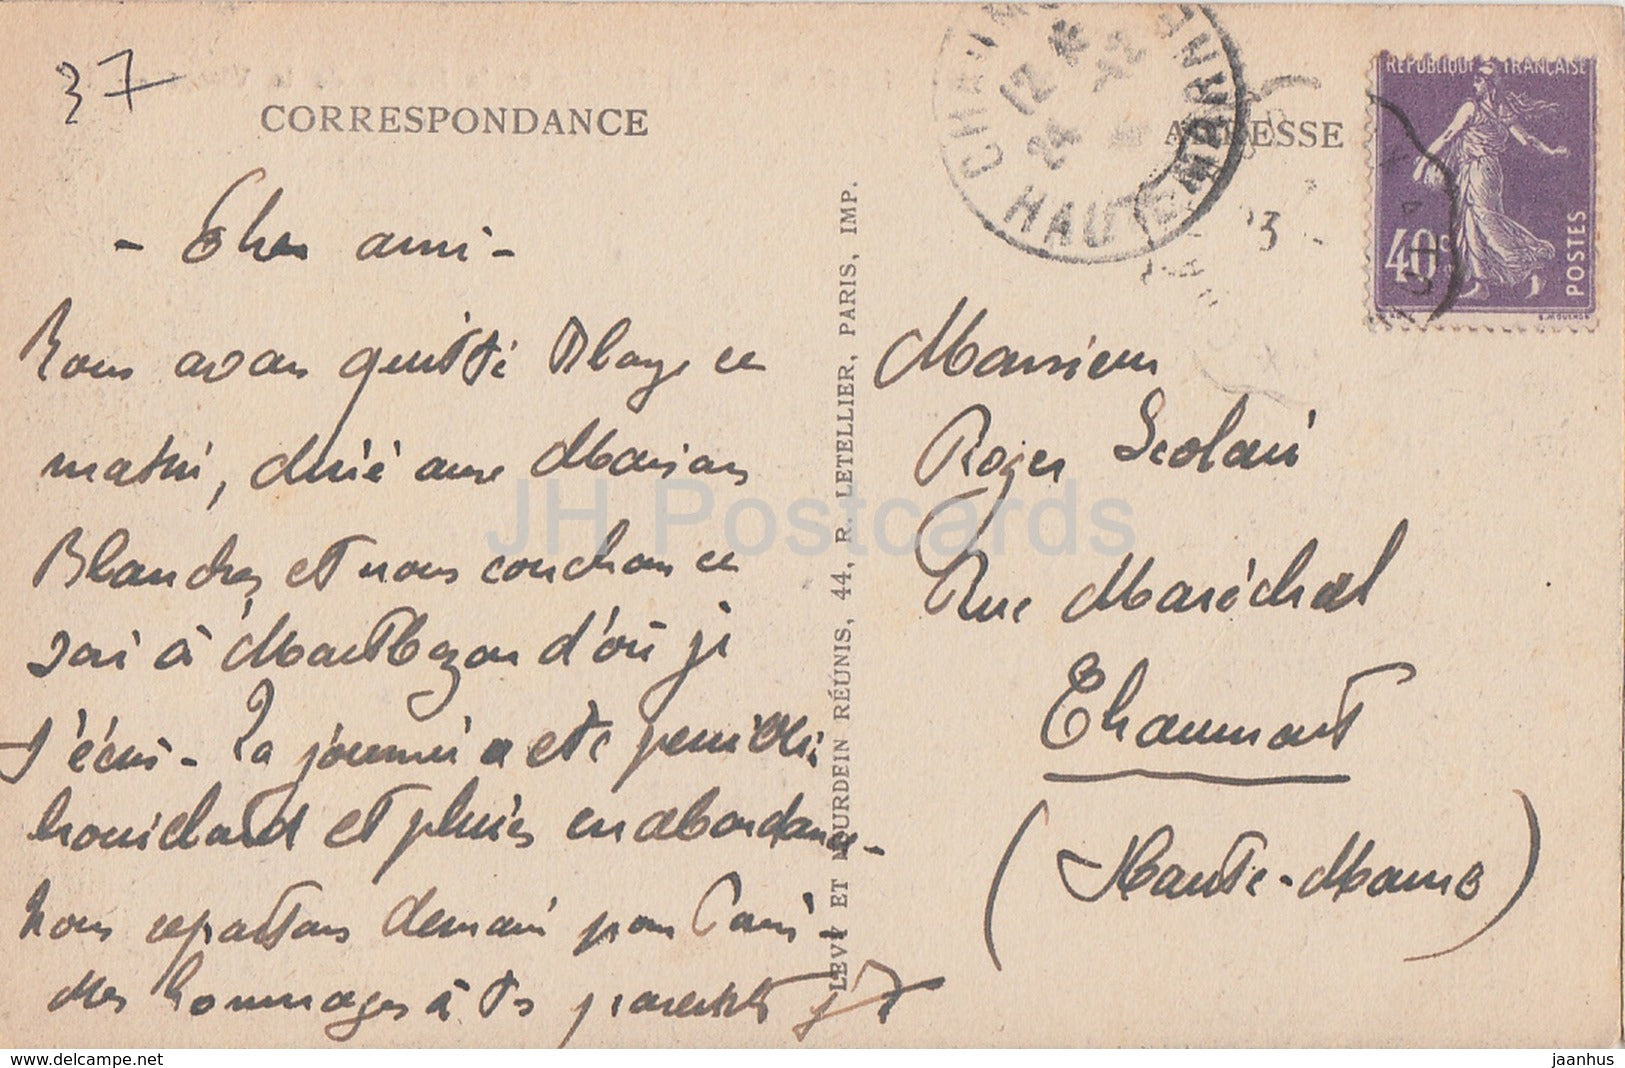 37
CORRESPONDANCE
ADRESSE
CHAUMONT
12
24
HAUTE-MARNE
REPUBLIQUE FRANÇAISE
40c
POSTES
- Cher ami -
Nous avons quitté Blaye ce
matin, dîné aux Maisons
Blanches et nous couchons ce
soir à Montbazon d'où je
t'écris - La journée a été pénible
brouillard et pluies en abondance -
Nous repartons demain pour Paris -
Mes hommages à tes parents
Monsieur
Roger Scolari
Rue Maréchal
Chaumont
(Haute-Marne)
LEVY ET NEURDEIN RÉUNIS, 44, R. LETELLIER, PARIS, IMP.
JH Postcards
www.delcampe.net
jaanhus